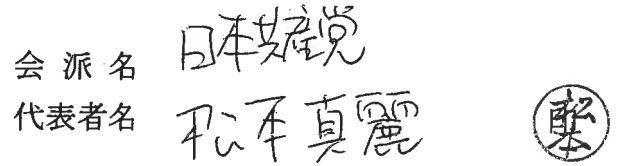 会派名 日本共産党
代表者名 松本真麗